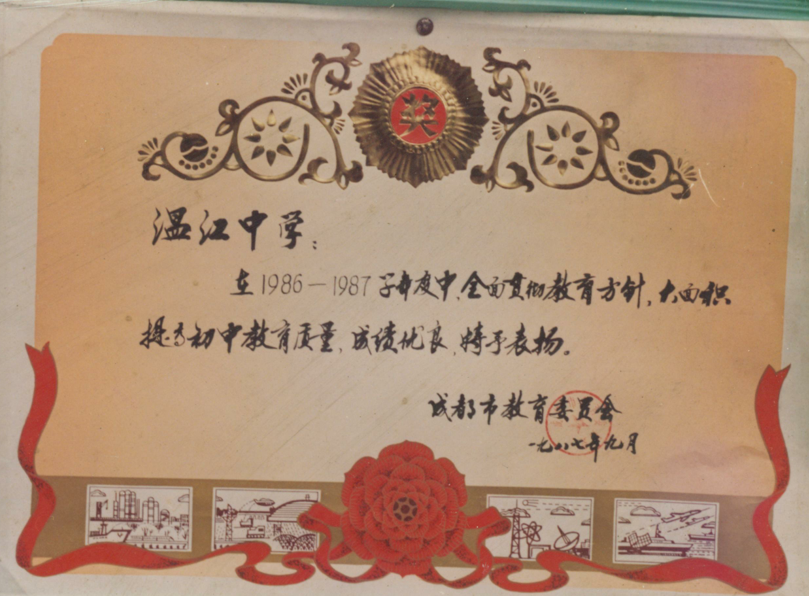 奖
温江中学:
在1986—1987学年度中,全面贯彻教育方针,大面积
提高初中教育质量,成绩优良,特予表扬。
成都市教育委员会
一九八七年九月